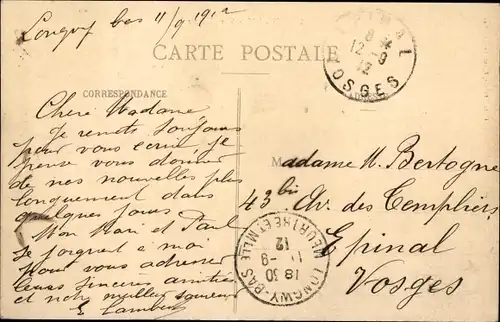 Longwy bas 11/9 1912
CARTE POSTALE
CORRESPONDANCE
Chère Madame
Je remets toujours
pour vous écrire, je
pense vous donner
de nos nouvelles plus
longuement dans
quelques jours
Mon Mari et Paul
se joignent à moi
pour vous adresser
leurs sincères amitiés
et notre meilleur souvenir
E Lambert
Madame M. Bertogne
43 bis Av. des Templiers
Epinal
Vosges
EPINAL
12-9
12
VOSGES
LONGWY-BAS
18 30
11-9
12
MEURTHE ET MLLE